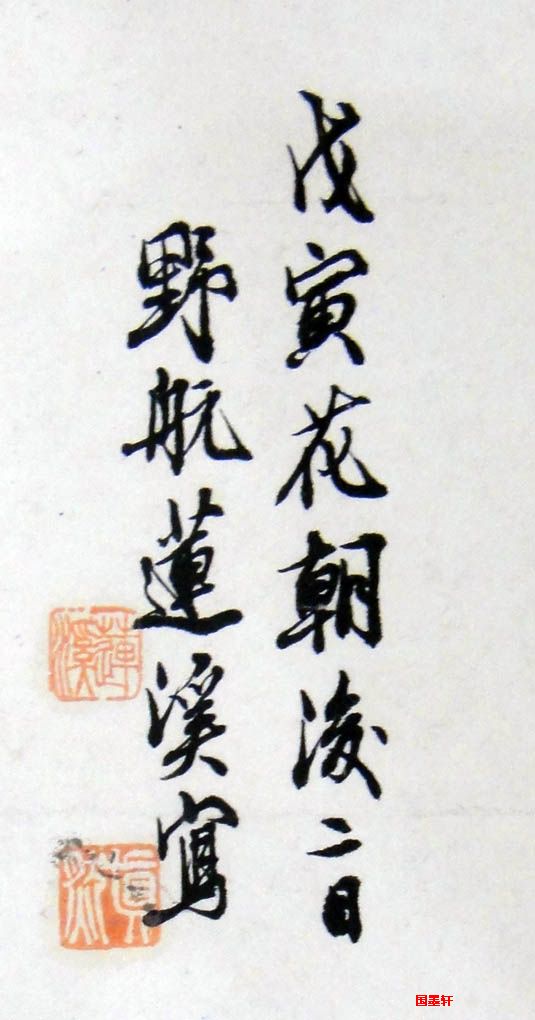 戊寅花朝後二日
野航蓮溪寫
蓮溪
真然
国墨轩